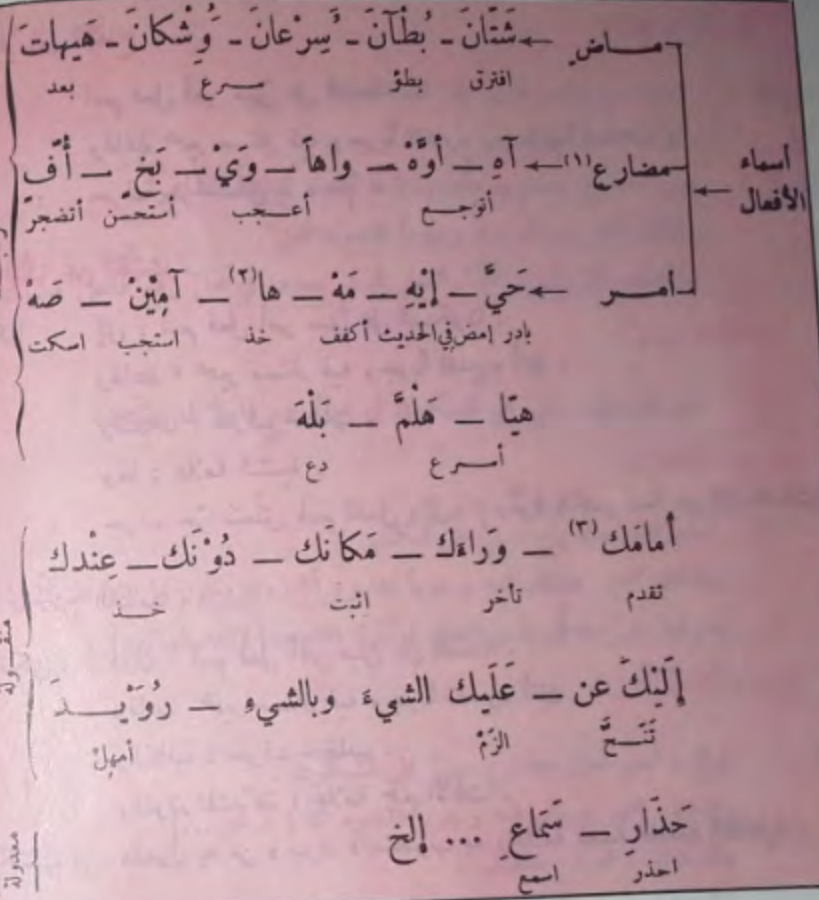 أسماء
الأفعال
ماض
شَتَّانَ - بُطْآنَ - سُرْعانَ - وُشْكانَ - هَيهاتَ
افترق بطؤ سرع بعد
مضارع (١)
آهِ - أوَّهْ - واهاً - وَيْ - بَخٍ - أُفٍّ
أتوجع أعجب أستحسن أتضجر
أمر
حَيَّ - إيْهِ - مَهْ - ها (٢) - آمِيْنْ - صَهْ
بادر إمض في الحديث أكفف خذ استجب اسكت
هيّا - هَلُمَّ - بَلْهَ
أسرع دع
أمامَك (٣) - وَراءَك - مَكانَك - دُوْنَك - عِنْدك
تقدم تأخر اثبت خذ
إلَيْكَ عن - عَلَيك الشيءَ وبالشيءِ - رُوَيْدَ
تَنَحَّ الزَمْ أمهِلْ
حَذَارِ - سَمَاعِ ... إلخ
احذر اسمع
منقولة
معدولة